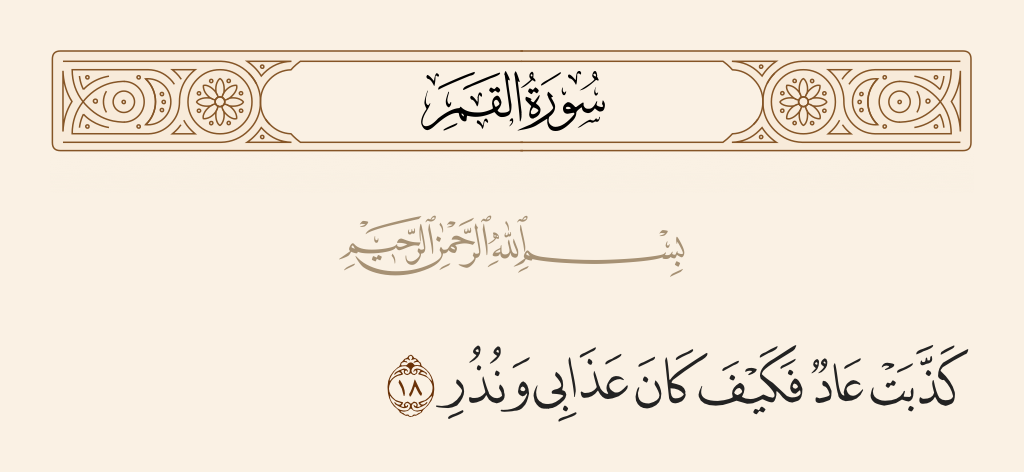 سُورَةُ القَمَرِ
بِسْمِ ٱللَّهِ ٱلرَّحْمَٰنِ ٱلرَّحِيمِ
كَذَّبَتْ عَادٌ فَكَيْفَ كَانَ عَذَابِى وَنُذُرِ ١٨